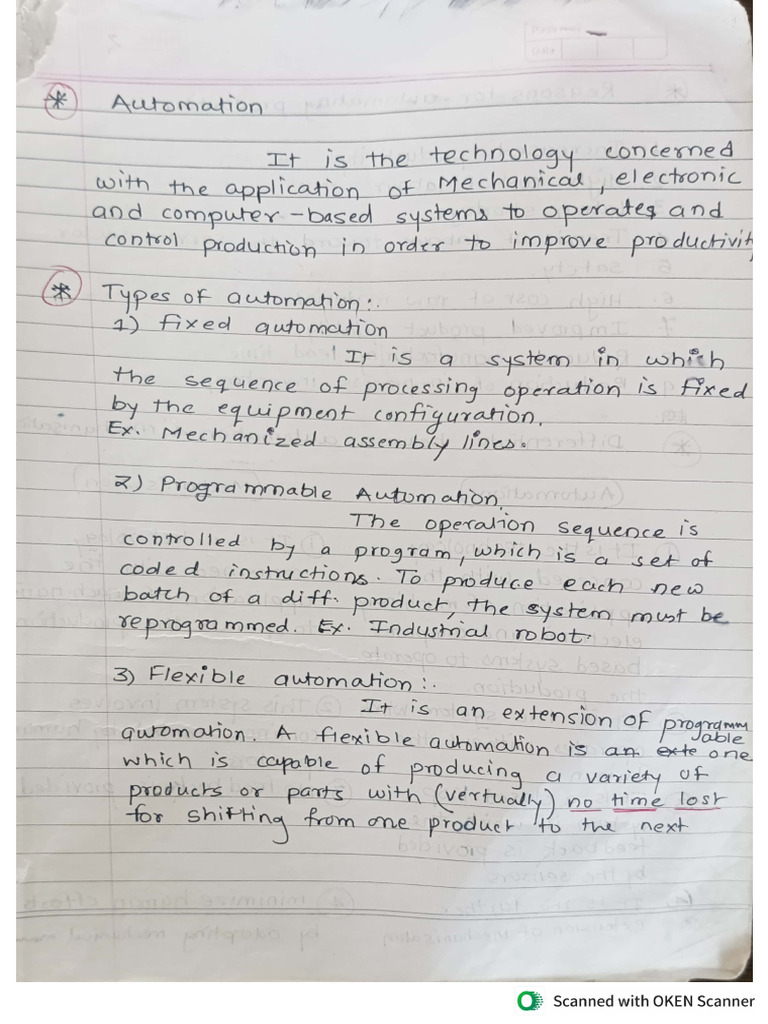 * Automation
It is the technology concerned
with the application of Mechanical, electronic
and computer-based systems to operates and
control production in order to improve productivity
* Types of automation:.
1) fixed automation
It is a system in which
the sequence of processing operation is fixed
by the equipment configuration.
Ex. Mechanized assembly lines.
2) Programmable Automation.
The operation sequence is
controlled by a program, which is a set of
coded instructions. To produce each new
batch of a diff. product, the system must be
reprogrammed. Ex. Industrial robot.
3) Flexible automation:.
It is an extension of programm
able
automation. A flexible automation is an exte one
which is capable of producing a variety of
products or parts with (vertually) no time lost
for shifting from one product to the next
Scanned with OKEN Scanner